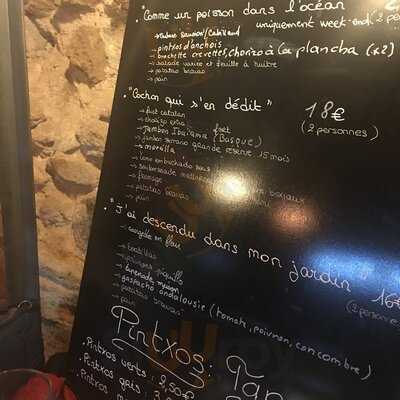 "Comme un poisson dans l'océan
uniquement week-end (2 pe
→ pintxos d'anchois
→ brochette crevettes, chorizo à la plancha (x2)
→ salade variée et feuille à huître
→ patatas bravas
→ pain
"Cochon qui s'en dédit" 18€
(2 personnes)
→ fuet catalan
→ chorizo extra
→ Jambon Ibaiama (Basque)
→ jambon serrano grande reserve 15 mois
→ morcilla
→ lomo embuchado
→ fromage
→ patatas bravas
→ pain
"J'ai descendu dans mon jardin" 16€
(2 personne
→ tortillas
→ gaspacho andalousie (tomate, poivron, concombre)
→ patatas bravas
→ pain
Pintxos: Tap
. Pintxos verts : 2,50€
. Pintxos gris : 3
. Pintxos